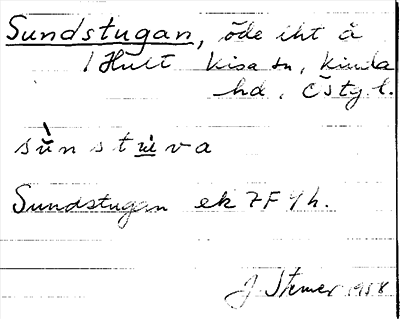 Sundstugan, öde lht å
1 Hult Kisa sn, Kinda
hd, Östg l.
sùnstuva
Sundstugan ek 7F 9h.
J. Stemer 1958